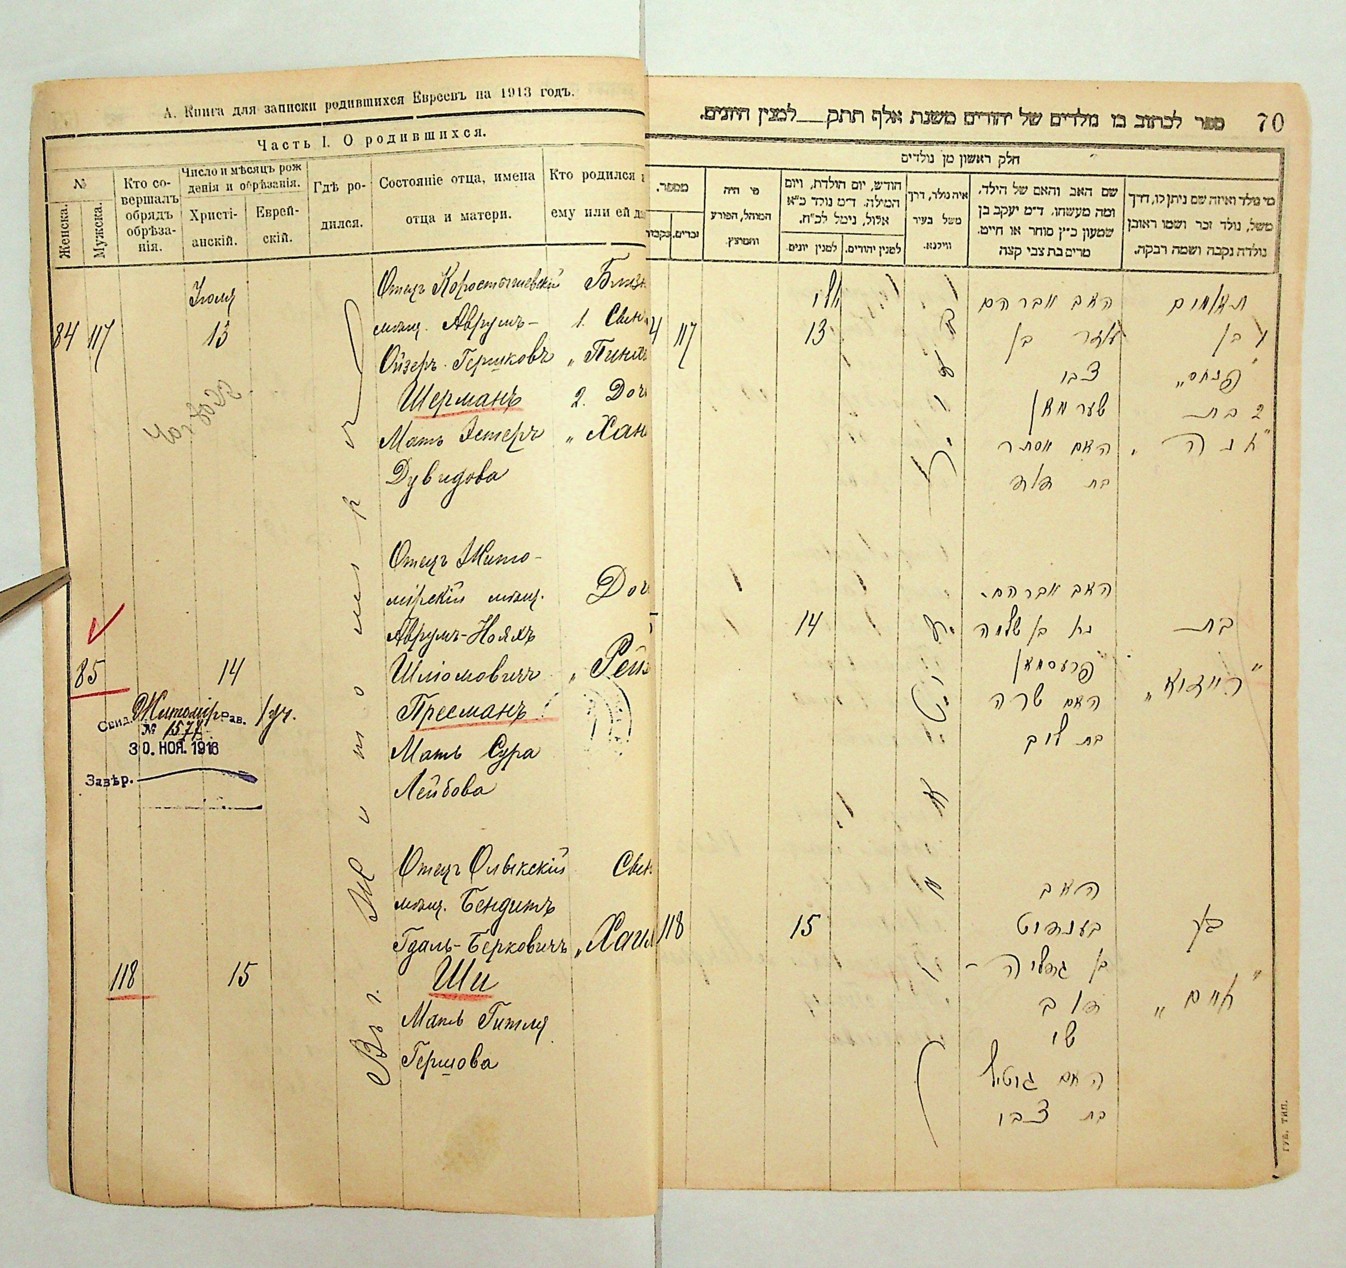 А. Книга для записки родившихся Евреевъ на 1913 годъ.
Часть I. О родившихся.
№
Женска.
Мужска.
Кто со-
вершалъ
обрядъ
обрѣза-
нія.
Число и мѣсяцъ рож
денія и обрѣзанія.
Христі-
анскій.
Еврей-
скій.
Гдѣ ро-
дился.
Состояніе отца, имена
отца и матери.
Кто родился
ему или ей
Іюля
84 117 13
Отецъ Коростышевскій
мѣщ. Аврумъ-
Ойзеръ Гершковъ
Шерманъ
Мать Эстеръ
Дувидова
1. Сын
„ Пинх
2. Доч
„ Хан
Въ г. Житомірѣ
85 14
Отецъ Жито-
мірскій мѣщ.
Аврумъ-Нояхъ
Шліомовичъ
Пресманъ
Мать Сура
Лейбова
Доч
„ Рей
Свид. Житомір Рав.
№ 1577
30. НОЯ. 1916
Завѣр.
118 15
Отецъ Олыкскій
мѣщ. Бендитъ
Гдаль-Берковичъ
Ши
Мать Гитля
Гершова
Сын
„ Хаи
70
ספר לכתוב בו נולדים של יהודים משנת אלף תתק__למנין היונים.
חלק ראשון מן נולדים
מספר.
זכרים.
נקבות
מי היה
המוהל, הפורע
והמוצץ.
חודש, יום הולדת, ויום
המילה. ד״מ נולד כ״א
אלול, נימל לכ״ח.
למנין יונים.
למנין יהודים.
איה נולד, דרך
משל בעיר
ווילנא.
שם האב והאם של הילד.
ומה מעשהו. ד״מ יעקב בן
שמעון כ״ץ סוחר או חיים.
מרים בת צבי קצה
מי נולד ואיזה שם ניתן לו, דרך
משל, נולד זכר ושמו ראובן
נולדה נקבה ושמה רבקה.
יולי
117 13
האב אברהם
עוזר בן
צבי
שערמאן
האם אסתר
בת דוד
תאומים
1 בן
„פנחס״
2 בת
„חנה״
14
האב אברהם
נח בן שלמה
פרעסמאן
האם שרה
בת לוב
בת
„רייזא״
118 15
האב
בענדיט
בן גדליה -
דוב
שי
האם גוטיל
בת צבי
בן
„חיים״
ГУБ. ТИП.